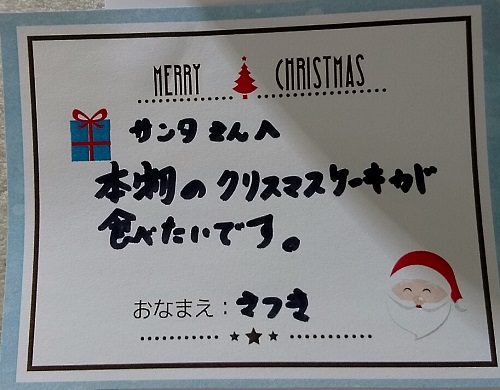 MERRY CHRISTMAS
サンタさんへ
本物のクリスマスケーキが
食べたいです。
おなまえ：さつき